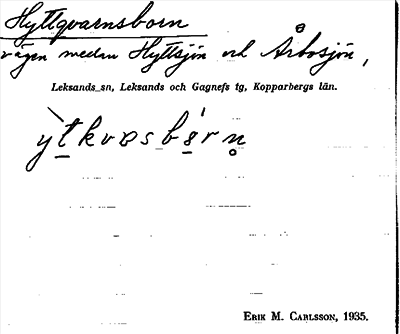 Hyttqvarnsborn
vägen medan Hyttsjön och Årbosjön,
Leksands sn, Leksands och Gagnefs tg, Kopparbergs län.
ỳt̠kvɐsbó̠rn̥
ERIK M. CARLSSON, 1935.